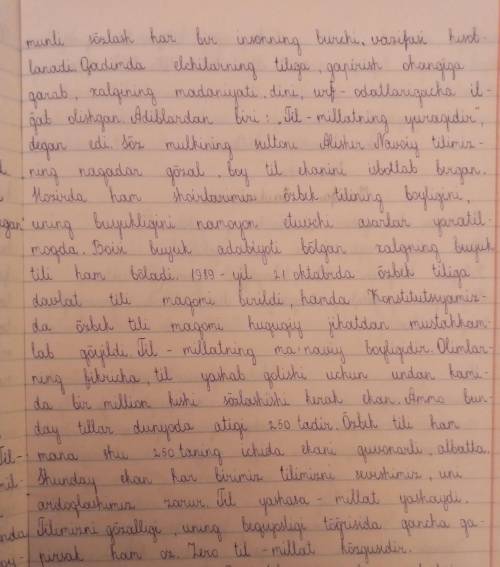 munli sözlash har bir insonning burchi, vazifasi hisob-
lanadi. Qadimda elchilarning tiliga, gapirish ohangiga
qarab, xalqning madaniyati, dini, urf-odatlarigacha il-
ğab olishgan. Adiblardan biri: "Til-millatning yuragidir",
degan edi. Söz mulkining sultoni Alisher Navoiy tilimiz-
ning naqadar gözal, boy til ekanini isbotlab bergan.
Hozirda ham shoirlarimiz özbek tilining boyligini,
uning buyukligini namoyon etuvchi asarlar yaratil-
moqda. Boisi buyuk adabiyoti bölgan xalqning buyuk
tili ham böladi. 1989-yil 21 oktabrda özbek tiliga
davlat tili maqomi berildi, hamda Konstitutsiyamiz-
da özbek tili maqomi huquqiy jihatdan mustahkam-
lab qöyildi. Til - millatning ma'naviy boyligidir. Olimlar-
ning fikricha, til yashab qolishi uchun undan kami-
da bir million kishi sözlashishi kerak ekan. Ammo bun-
day tillar dunyoda atigi 250 tadir. Özbek tili ham
Til- mana shu 250 taning ichida ekani quvonarli, albatta.
mil- Shunday ekan har birimiz tilimizni sevishimiz, uni
ardoqlashimiz zarur. Til yashasa - millat yashaydi.
Tilimizni gözalligi, uning beqiyosligi töğrisida qancha ga-
pirsak ham oz. Zero til - millat közgusidir.